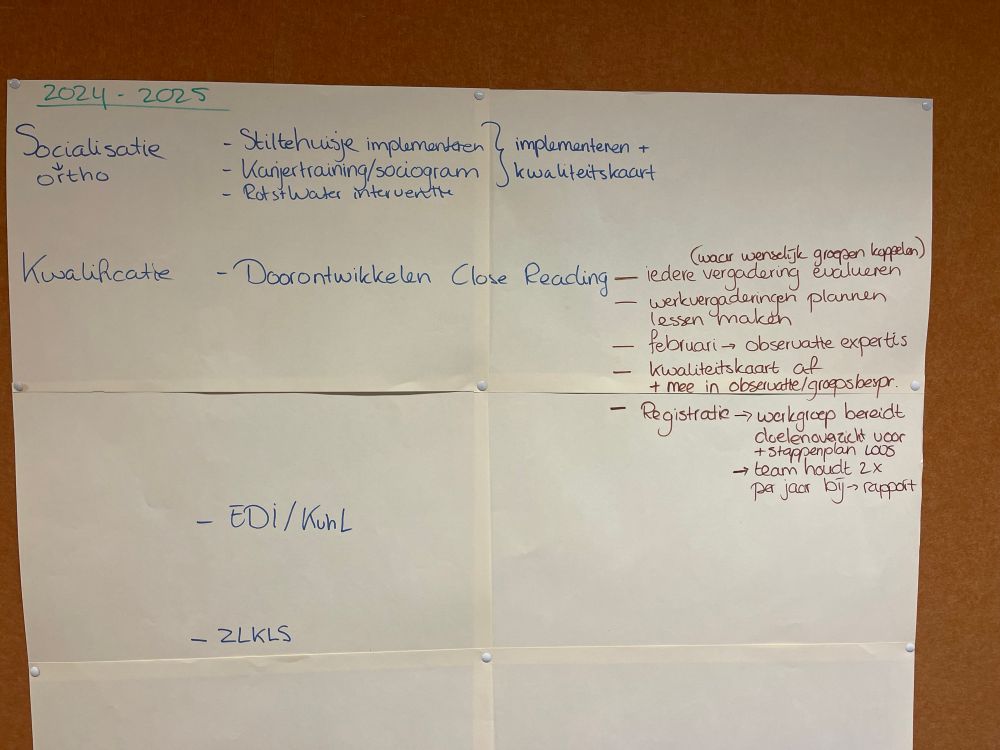 2024 - 2025
Socialisatie
ortho
- Stiltehuisje implementeren
- Kanjertraining/sociogram
- RotsWater interventie
implementeren +
kwaliteitskaart
Kwalificatie
- Doorontwikkelen Close Reading
(waar wenselijk groepen koppelen)
— iedere vergadering evalueren
— werkvergaderingen plannen
lessen maken
— februari → observatie expertis
— kwaliteitskaart af
+ mee in observatie/groepsbespr.
— Registratie → werkgroep bereidt
doelenoverzicht voor
+ stappenplan LOOS
→ team houdt 2x
per jaar bij → rapport
- EDI/KuhL
- ZLKLS